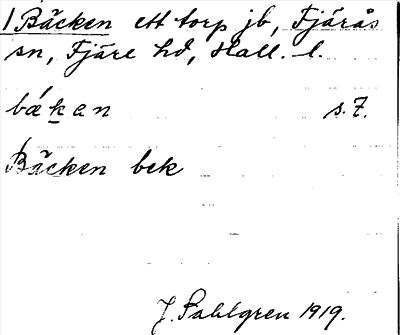 1 Bäcken ett torp jb, Fjärås
sn, Fjäre hd, Hall. l.
bǽkan s. 7.
Bäcken bek
J. Sahlgren 1919.